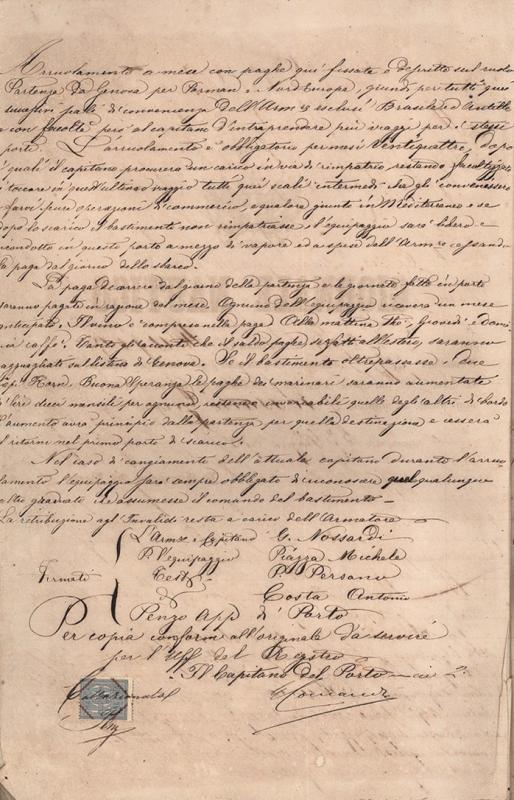 Arruolamento a mese con paghe qui fissate e descritte sul ruolo
Partenza da Genova per Nord Europa, quindi per tutti quei
di convenienza dell'Arm.re esclusi Brasile ed Antille
e con facoltà però al capitano d'intraprendere più viaggi per i stessi
porti. L'arruolamento è obbligatorio per mesi Ventiquattro, dopo
i quali il capitano procurerà un carico in via di rimpatrio restando facoltizzato
di toccare in quest'ultimo viaggio tutti quei scali intermedi che gli convenissero
farvi pure operazioni di commercio, e qualora giunto in Mediterraneo e se
dopo lo scarico il bastimento non rimpatriasse l'equipaggio sarà libero e
ricondotto in questo porto a mezzo di vapore ed a spese dell'Arm.re cessando
la paga dal giorno dello sbarco.
La paga decorre dal giorno della partenza e le giornate fatte in porto
saranno pagate in ragione del mese. Ognuno dell'equipaggio riceverà un mese
anticipato. Il vino è compreso nella paga. Alla mattina Giovedì e
caffè. Tanto gli acconti che il saldo paghe se fatti all'estero, saranno
ragguagliati sul listino di Genova. Se il bastimento oltrepassasse i due
Capi Horn, Buona Speranza le paghe dei marinari saranno aumentate
di lire dieci mensili per ognuno restando invariabili quelle degli altri di bordo
L'aumento avrà principio dalla partenza per quella destinazione e cesserà
al ritorno nel primo porto di scarico.
Nel caso di cangiamento dell'attuale capitano durante l'arruo
lamento l'equipaggio sarà sempre obbligato di riconoscere qualunque
altro graduato che assumesse il comando del bastimento –
La retribuzione agl'Invalidi resta a carico dell'Armatore
Firmati
L'Arm.re e Capitano G. Nossardi
P. l'equipaggio Piazza Michele
Testi P. Persano
d° Costa Antonio
Penzo App. di Porto
Per copia conforme all'originale da servire
per l'Uff. del Registro
Il Capitano del Porto